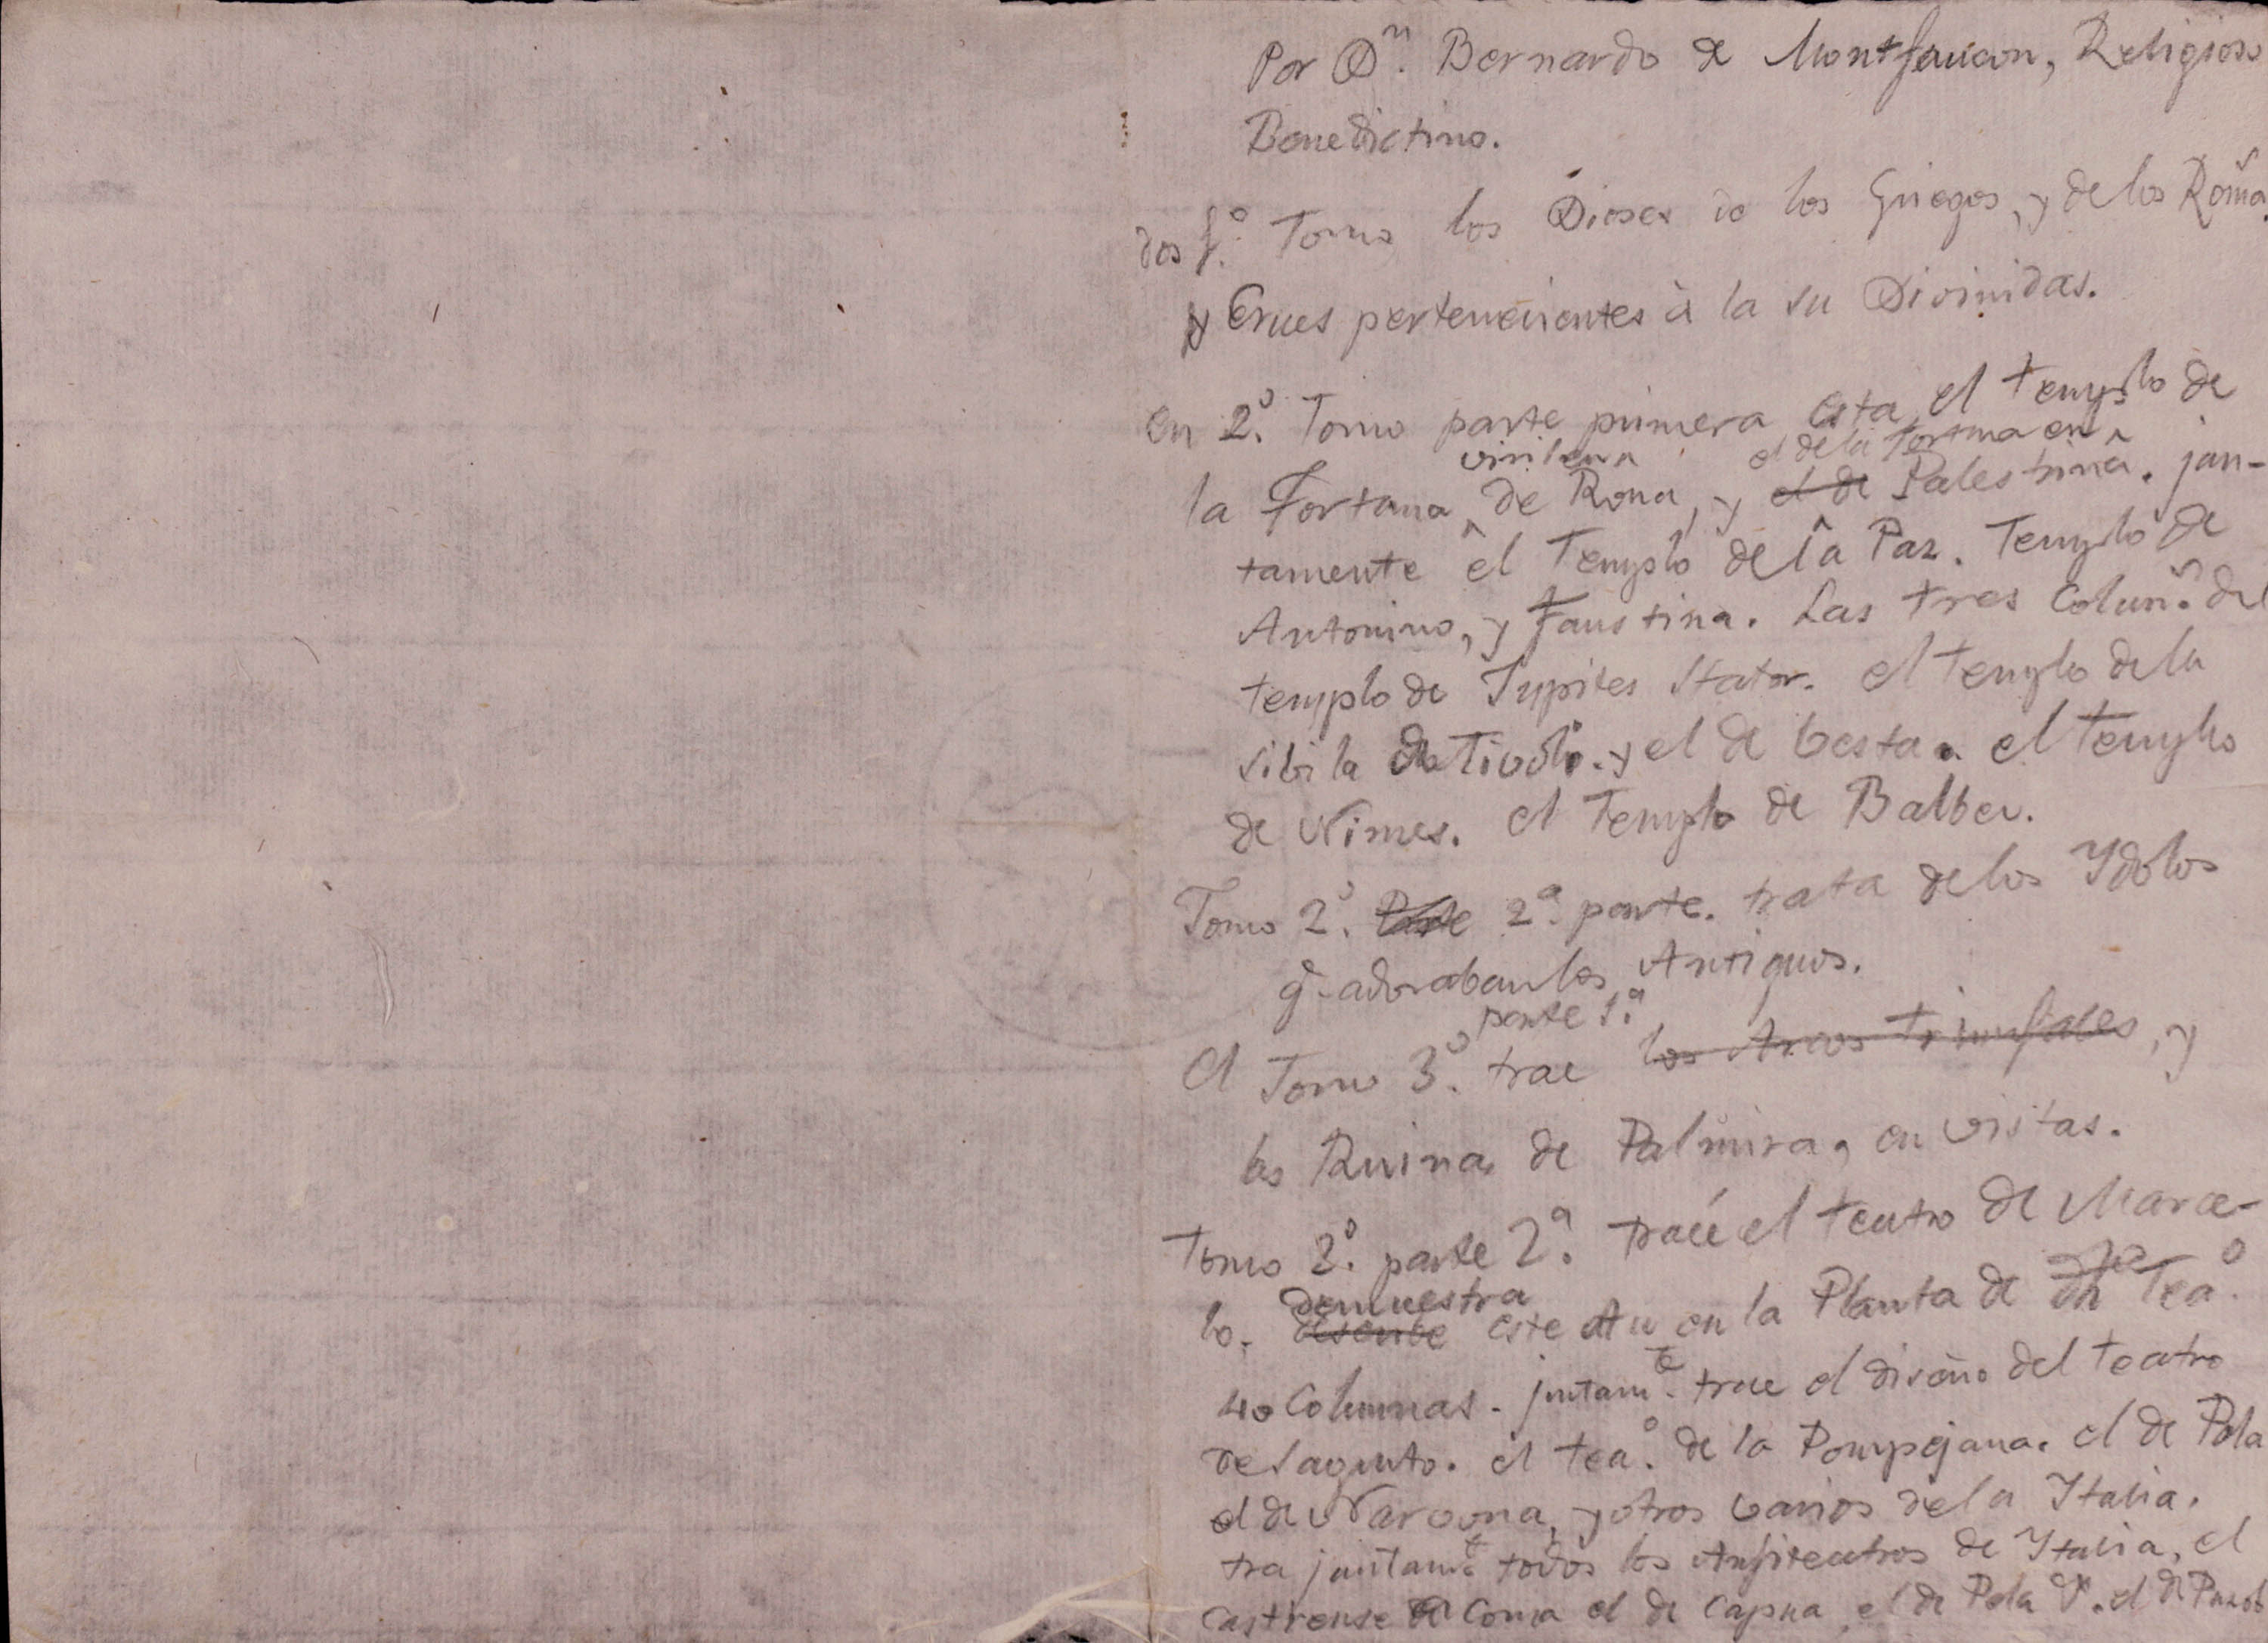 Por Dn. Bernardo de Montfaucon, Religioso
Benedictino.
dos f.o Tomo los Dioses de los Griegos, y de los Romas.
y Erues pertenecientes à la su Divinidas.
en 2.o Tomo parte primera esta el templo de
virilem el de la Fortuna en
la Fortuna, de Roma, y el de Palestrina. jun-
tamente el Templo de la Paz. Templo de
Antonino, y Faustina. Las tres Colun.s del
templo de Jupiter Stator. el templo de la
sibila de Tivoli. y el de besta. el templo
de Nimes. el Templo de Balbec.
Tomo 2.o Parte 2.a parte. trata de los Ydolos
q.e adoraban los Antiguos.
parte 1.a
el Tomo 3.o trae los Arcos Triunfales, y
las Ruinas de Palmira, en vistas.
Tomo 3.o parte 2.a traé el teatro de Marce-
demuestra
lo. describe este Au en la Planta de Tea.o
40 Columnas. juntam.te trae el diseño del teatro
de Sagunto. el tea.o de la Pompejana. el de Pola
el de Narvona, y otros barios de la Italia.
tra juntam.te todos los Anfiteatros de Italia, el
castrense el de Capua, el de Pola el de